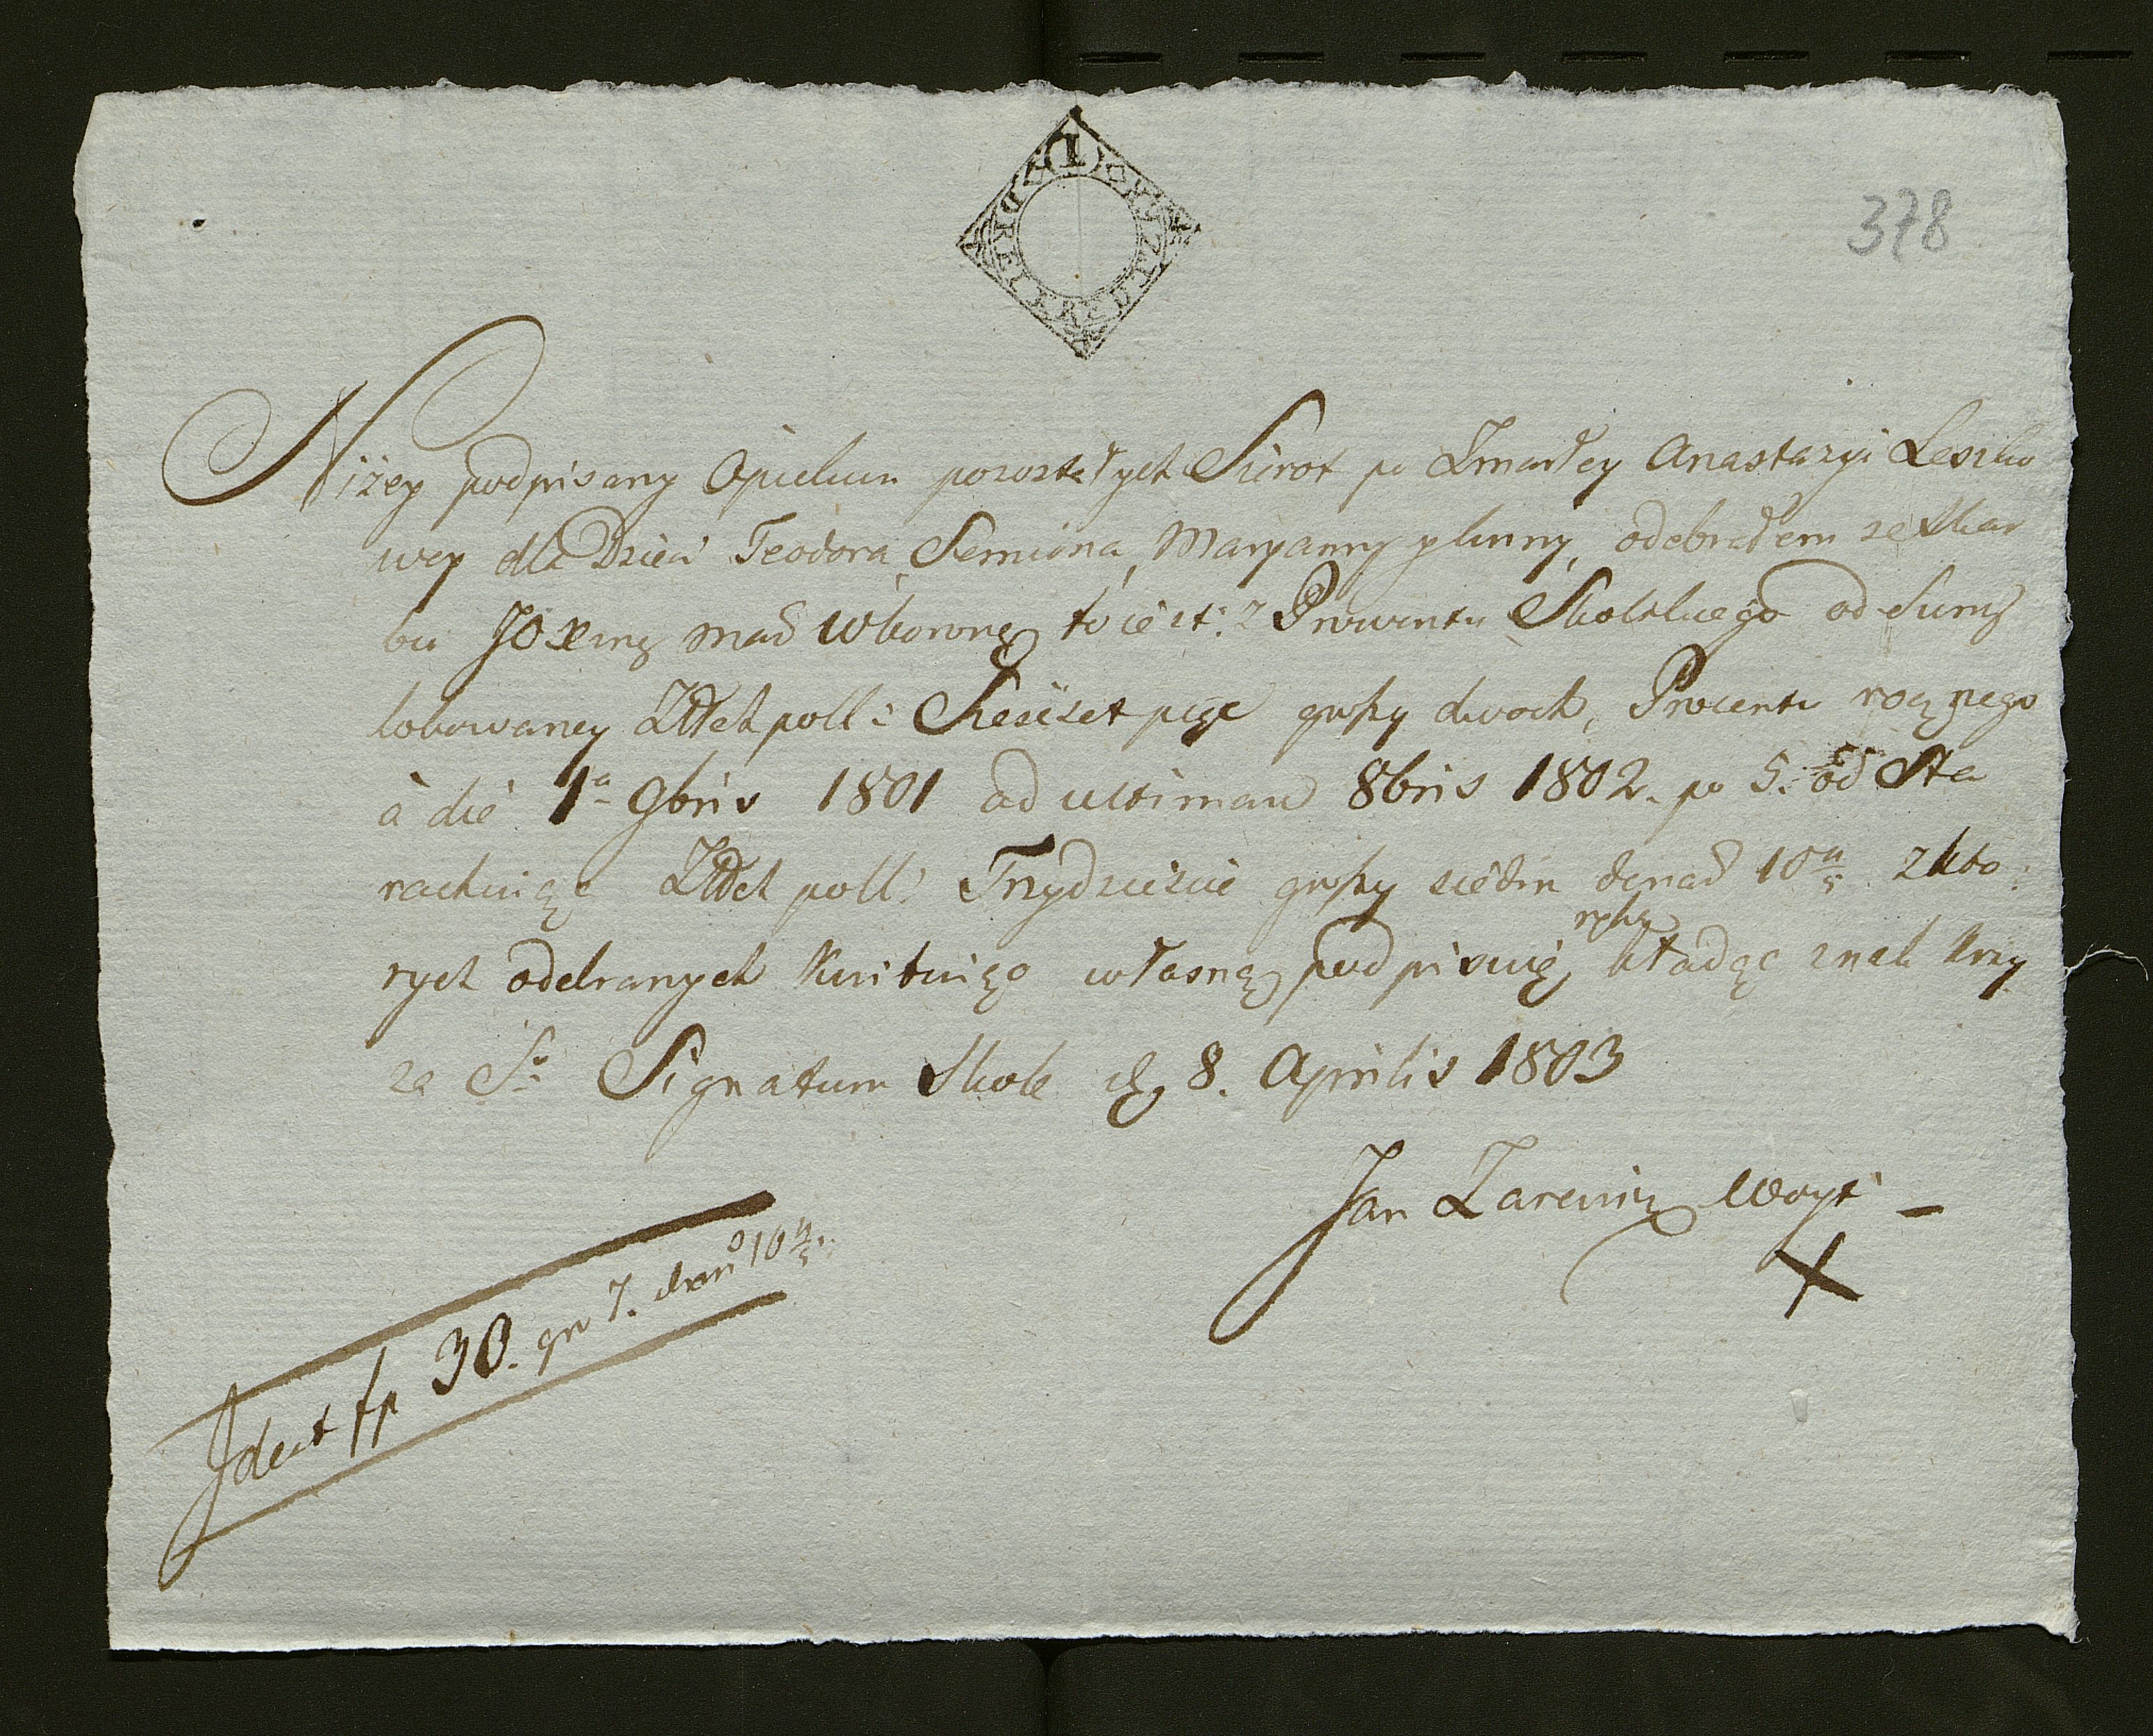 DREI KREUTZER
378
Niżey podpisany Opiekun pozostałych Sierot po Zmarłey Anastazyi Lesiko
wey dla Dzieci Teodora, Semiona, Maryanny y Anny, odebrałem ze Skar
bu JOXiney mad Wboroney to iest: z Prowentu Skolskiego od Sumy
lokowaney Złłch poll: Sześćset pięć groszy dwoch, Procentu rocznego
à die 1a 9bris 1801 ad ultimam 8bris 1802. po 5. od Sta
rachuiąc Złłch poll: Trzydzieście groszy siedm denar 10 4/5 z kto
rych odebranych kwituiąc własną ręką podpisuię kładąc znak krzy
za So Signatum Skole d. 8. Aprilis 1803
Jan Zarewicz Woyt
X
Id est fp 30. gr 7. den 10 4/5